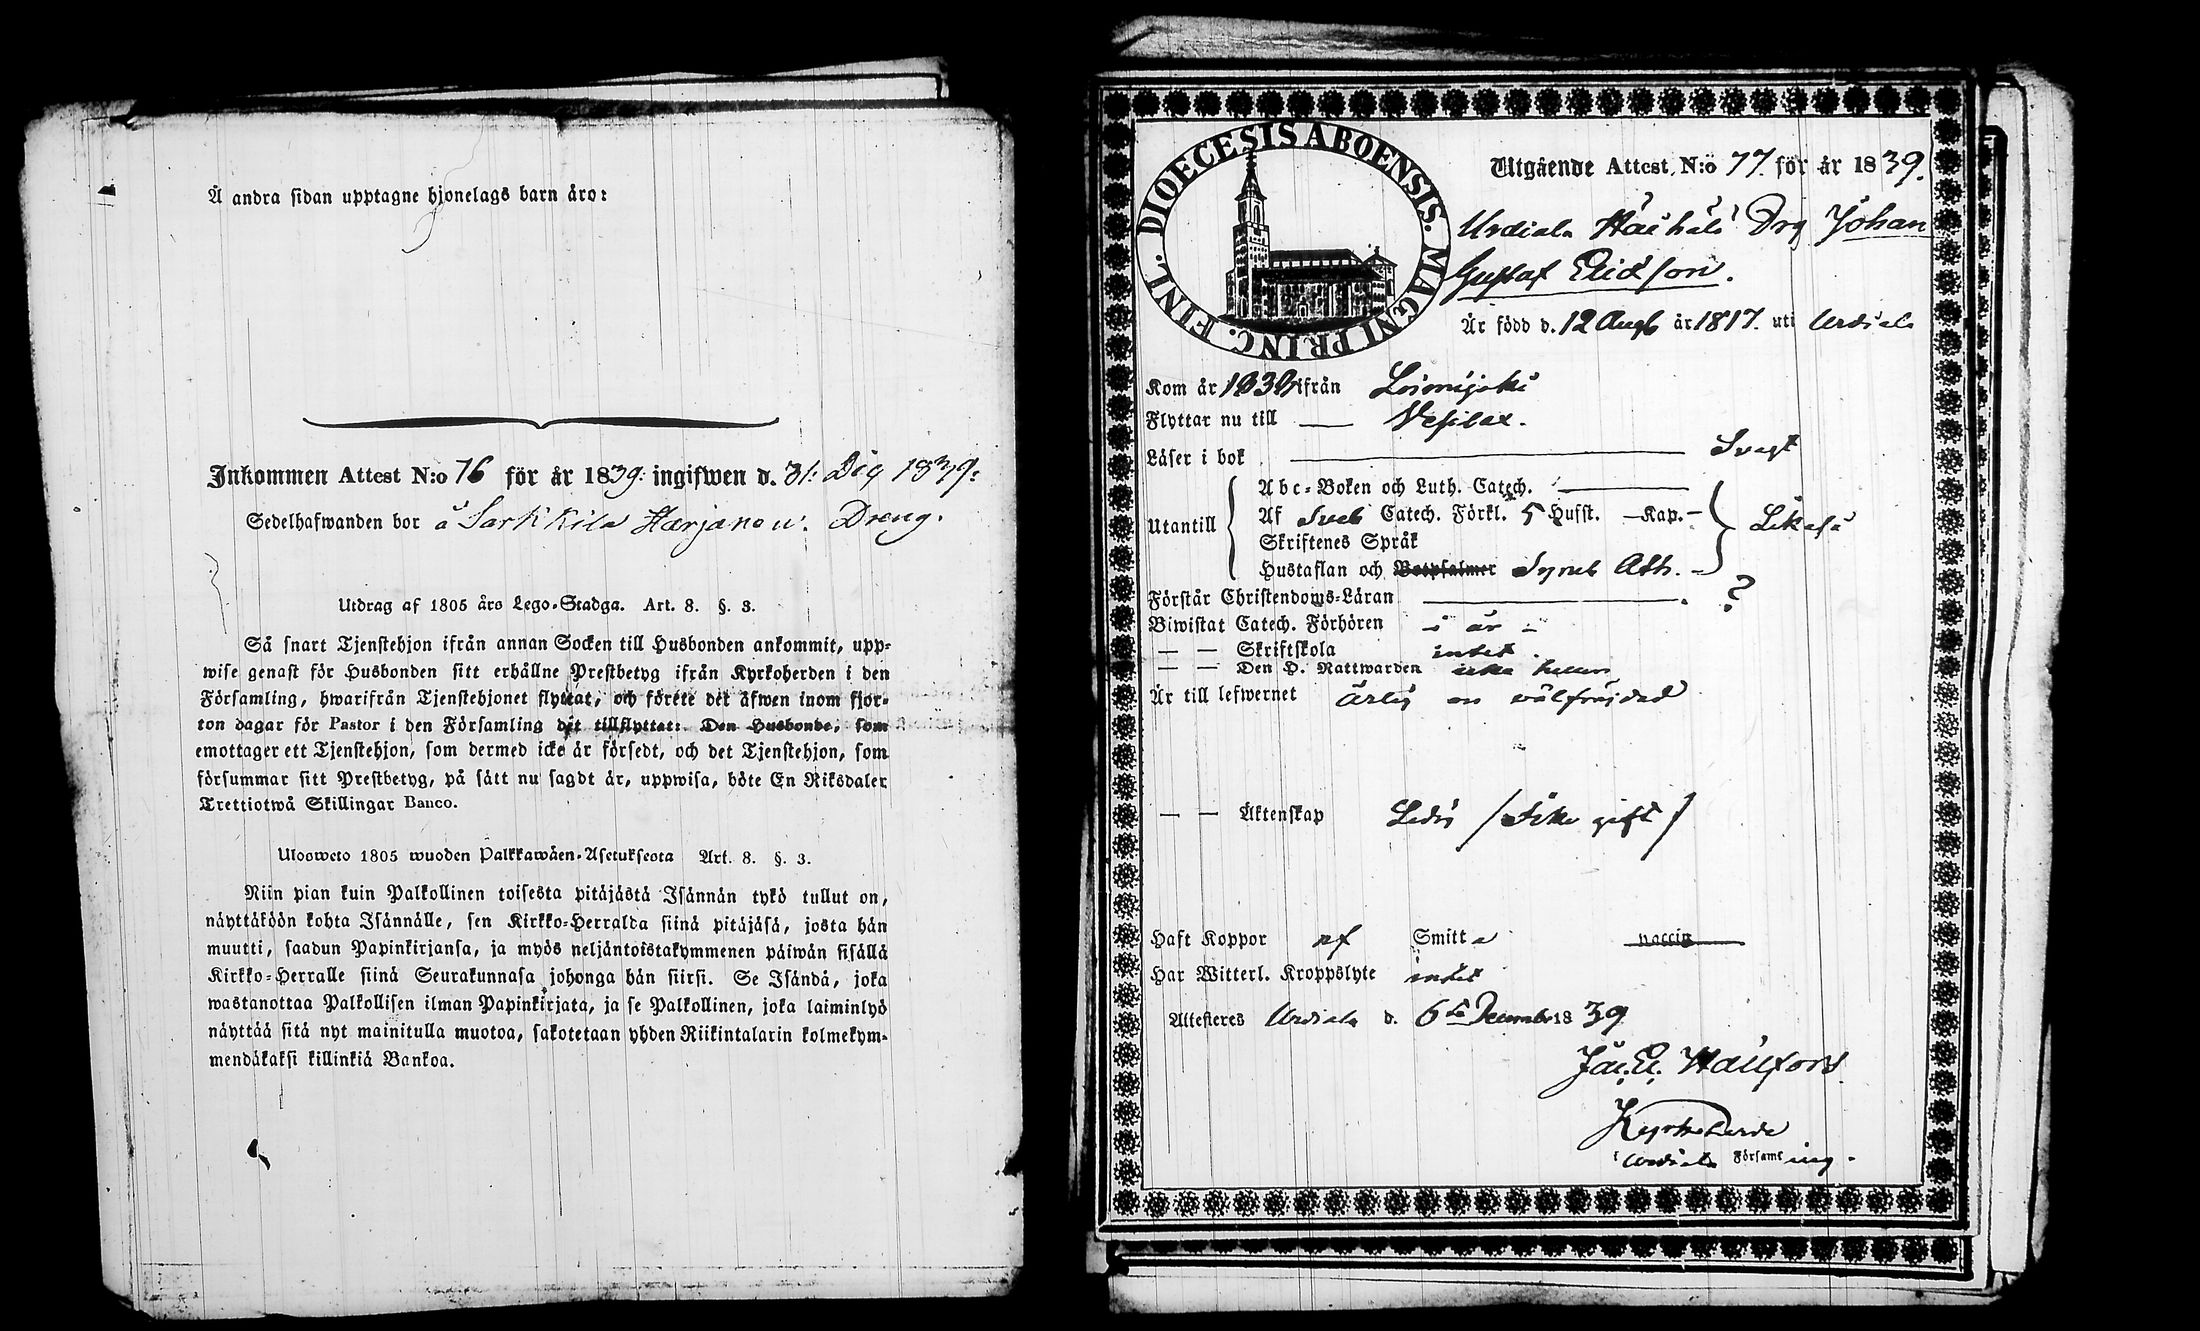 Å andra sidan upptagne hjonelags barn äro:
Inkommen Attest N:o 76 för år 1839: ingifwen d. 31: Dec 1839:
Sedelhafwanden bor å Sarkkila Harjanen u. Dreng.
Utdrag af 1805 års Lego-Stadga. Art. 8. §. 3.
Så snart Tjenstehjon ifrån annan Socken till Husbonden ankommit, upp-
wise genast för Husbonden sitt erhållne Prestbetyg ifrån Kyrkoherden i den
Församling, hwarifrån Tjenstehjonet flyttat, och förete det äfwen inom fjor-
ton dagar för Pastor i den Församling det tillflyttat: Den Husbonde, som
emottager ett Tjenstehjon, som dermed icke är försedt, och det Tjenstehjon, som
försummar sitt Prestbetyg, på sätt nu sagdt är, uppwisa, böte En Riksdaler
Trettiotwå Skillingar Banco.
Ulosweto 1805 wuoden Palkkawäen-Asetuksesta Art. 8. §. 3.
Niin pian kuin Palkollinen toisesta pitäjästä Isännän tykö tullut on,
näyttäköön kohta Isännälle, sen Kirkko-Herralda siinä pitäjäsä, josta hän
muutti, saadun Papinkirjansa, ja myös neljäntoistakymmenen päiwän sisällä
Kirkko-Herralle siinä Seurakunnasa johonga hän siirsi. Se Isändä, joka
wastanottaa Palkollisen ilman Papinkirjata, ja se Palkollinen, joka laiminlyö
näyttää sitä nyt mainitulla muotoa, sakotetaan yhden Riikintalarin kolmekym-
mendäkaksi killinkiä Bankoa.
DIOECESIS ABOENSIS. MAGNI PRINC. FINL.
Utgående Attest, N:o 77. för år 1839.
Urdiala Drg Johan
Gustaf Ericsson.
Är född d. 12 Aug är 1817. uti Urdiala
Kom år 1839 ifrån Loimijoki
Flyttar nu till Vesilax.
Läser i bok Svagt
Abc-Boken och Luth. Catech.
Utantill Af Sveb Catech. Förkl. 5 Husst. Kap. Likaså
Skriftenes Språk
Hustaflan och Botpsalmer Symb Ath.
Förstår Christendoms-Läran ?
Biwistat Catech. Förhören i år
Skriftskola intet.
Den H. Nattwarden icke
Är till lefwernet ärlig och wälfräjdad
Äktenskap Ledig / Icke gift /
Haft Koppor af Smitta vaccin
Har Witterl. Kroppslyte intet
Attesteres Urdiala d. 6te December 1839
Kyrkoherde
i Urdiala Församling.